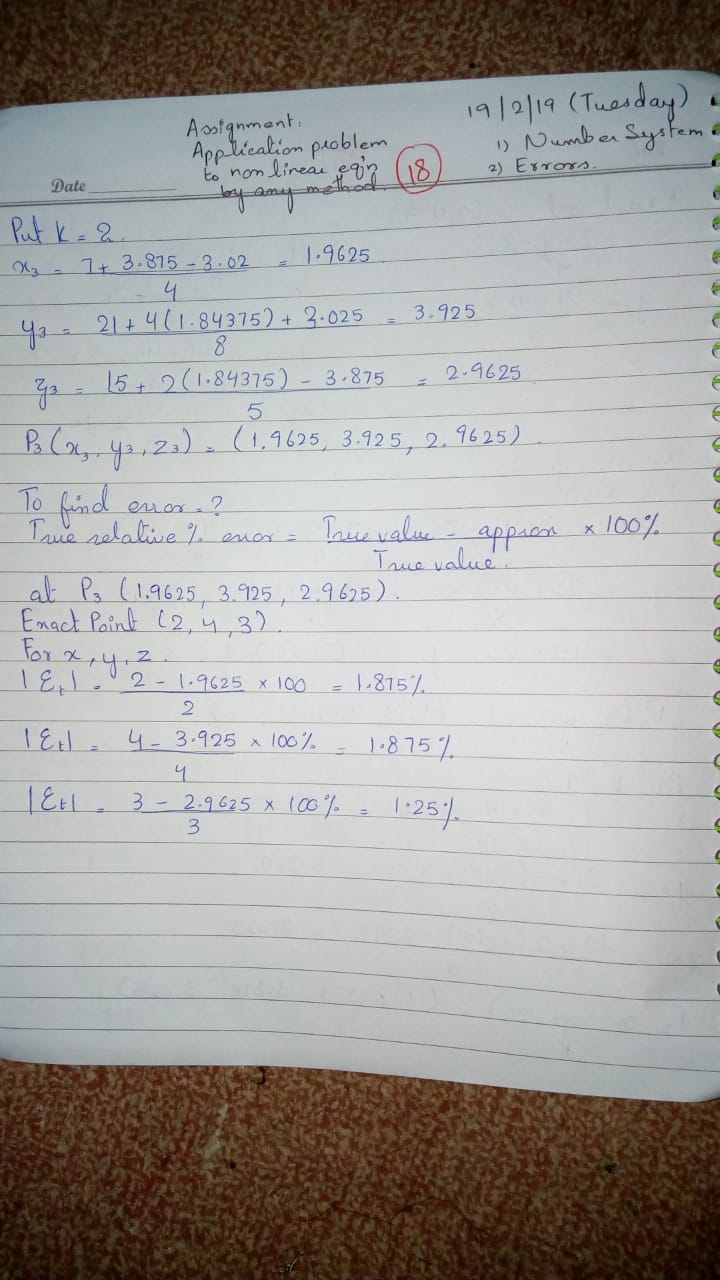 Assignment:
Application problem
to non linear eq'n
by any method.
18
19/2/19 (Tuesday)
1) Number System
2) Errors.
Date
Put k = 2.
x₃ = 7 + 3.875 - 3.02 / 4 = 1.9625
y₃ = 21 + 4(1.84375) + 3.025 / 8 = 3.925
z₃ = 15 + 2(1.84375) - 3.875 / 5 = 2.9625
P₃(x₃, y₃, z₃) = (1.9625, 3.925, 2.9625).
To find error = ?
True relative % error = True value - approx / True value. × 100%
at P₃ (1.9625, 3.925, 2.9625).
Exact Point (2, 4, 3).
For x, y, z.
|Ɛt| = 2 - 1.9625 / 2 × 100 = 1.875%
|Ɛt| = 4 - 3.925 / 4 × 100% = 1.875%
|Ɛt| = 3 - 2.9625 / 3 × 100% = 1.25%.